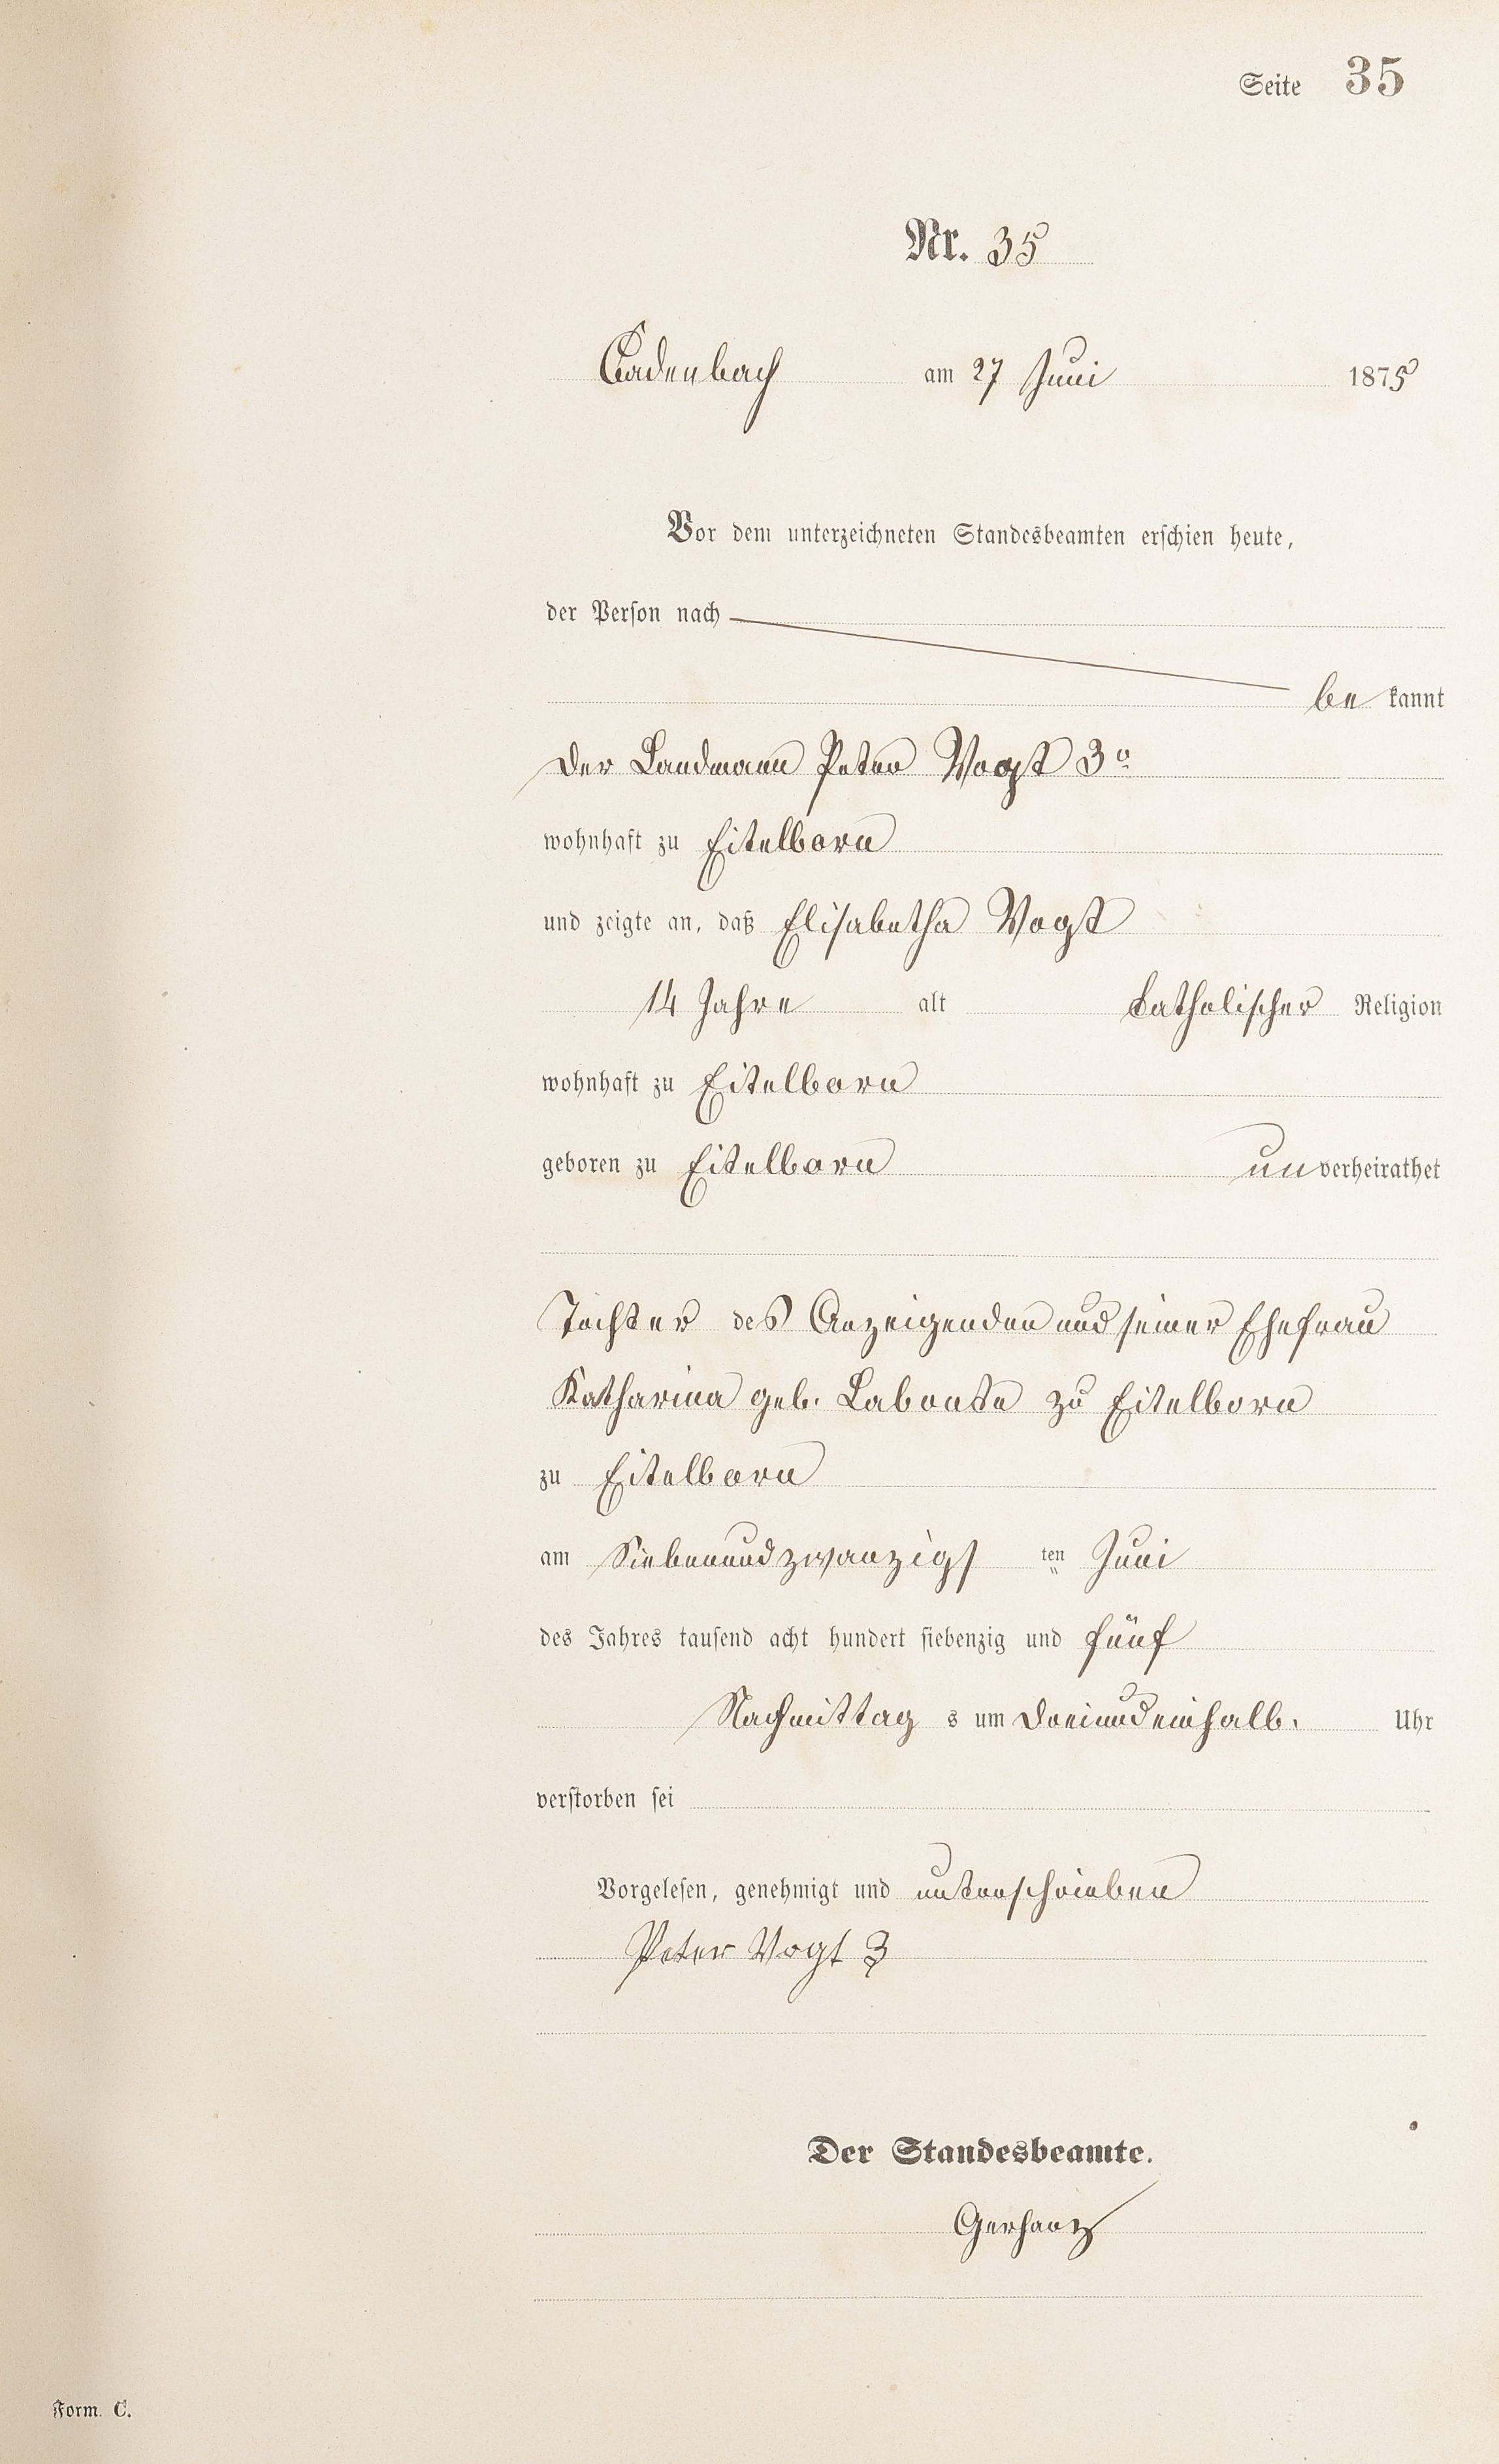 Seite 35
Nr. 35
Cadenbach am 27 Juni 1875
Vor dem unterzeichneten Standesbeamten erschien heute,
der Person nach
be kannt
der Landmann Peter Vogt 3o
wohnhaft zu Eitelborn
und zeigte an, daß Elisabetha Vogt
14 Jahre alt katholischer Religion
wohnhaft zu Eitelborn
geboren zu Eitelborn unverheirathet
Tochter des Anzeigenden und seiner Ehefrau
Katharina geb. Labonte zu Eitelborn
zu Eitelborn
am Siebenundzwanzigs ten Juni
des Jahres tausend acht hundert siebenzig und fünf
Nachmittag s um dreiundeinhalb. Uhr
verstorben sei
Vorgelesen, genehmigt und unterschrieben
Peter Vogt 3
Der Standesbeamte.
Gerharz
Form. C.